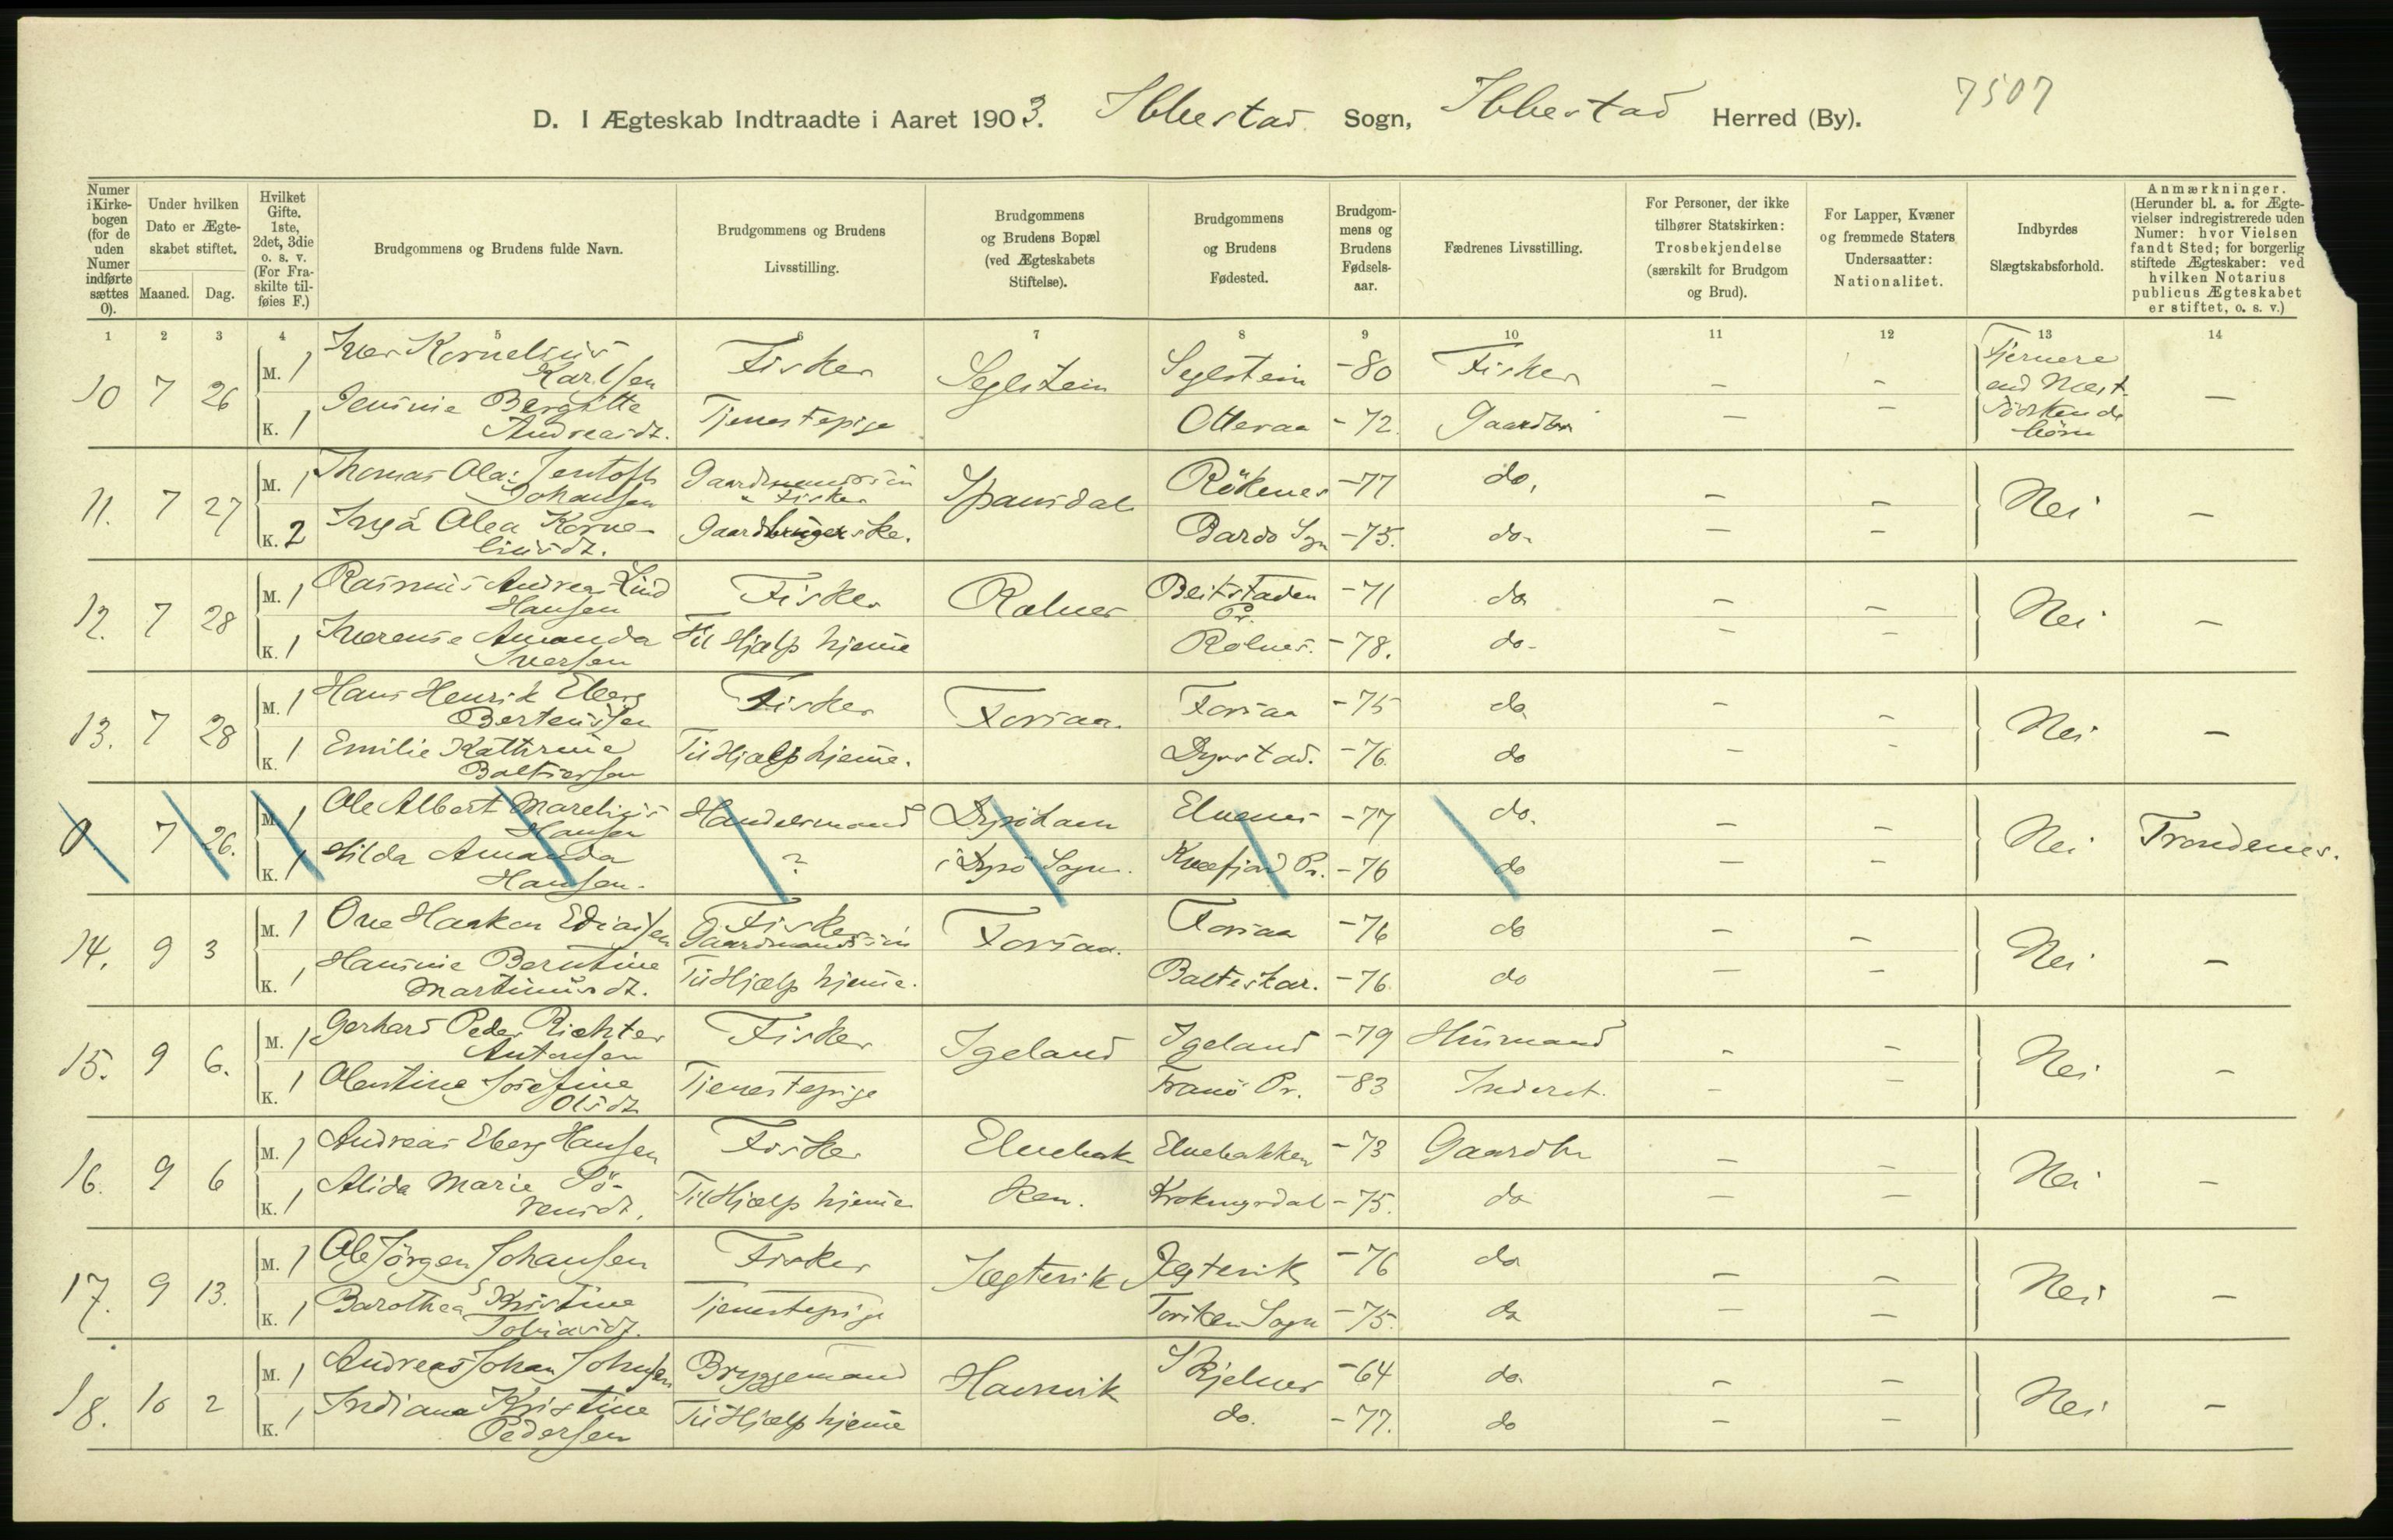 D. I Ægteskab Indtraadte i Aaret 1903. Ibbestad Sogn, Ibbestad Herred (By). 7507
Numer i Kirkebogen (for de uden Numer indførte sættes 0).
Under hvilken Dato er Ægteskabet stiftet. Maaned. Dag.
Hvilket Gifte. 1ste, 2det, 3die o. s. v. (For Fraskilte tilføies F.)
Brudgommens og Brudens fulde Navn.
Brudgommens og Brudens Livsstilling.
Brudgommens og Brudens Bopæl (ved Ægteskabets Stiftelse).
Brudgommens og Brudens Fødested.
Brudgommens og Brudens Fødselsaar.
Fædrenes Livsstilling.
For Personer, der ikke tilhører Statskirken: Trosbekjendelse (særskilt for Brudgom og Brud).
For Lapper, Kvæner og fremmede Staters Undersaatter: Nationalitet.
Indbyrdes Slægtskabsforhold.
Anmærkninger. (Herunder bl. a. for Ægtevielser indregistrerede uden Numer: hvor Vielsen fandt Sted; for borgerlig stiftede Ægteskaber: ved hvilken Notarius publicus Ægteskabet er stiftet, o. s. v.)
1 2 3 4 5 6 7 8 9 10 11 12 13 14
10 7 26 M. 1 Iver Kornelius Karlsen Fisker Seglstein Seglstein -80 Fisker – – Fjernere end Næstsödskendebörn –
K. 1 Jennie Bergitte Andreasdt. Tjenestepige Otteraa -72. Gaardbr – –
11. 7 27 M. 1 Thomas Olai Jentoft Johansen Gaardmandssön & Fisker Spansdal Rökenes -77 do. – – Nei –
K. 2 Inga Olea Korneliusdt. Gaardbrugerske. Bardo Sgn -75. do. – –
12. 7 28 M. 1 Rasmus Andreas Lind Hansen Fisker Rolnes Beitstaden Pr. -71 do – – Nei –
K. 1 Iverense Amanda Iversen Til Hjælp hjemme Rolnes. -78. do. – –
13. 7 28 M. 1 Hans Henrik Eberg Bertensen Fisker Forsaa. Forsaa -75 do – – Nei –
K. 1 Emilie Kathrine Baltsersen Til Hjælp hjemme. Dyrstad. -76. do – –
0 7 26. M. 1 Ole Albert Marelius Hansen Handelsmand Dyröhavn Elvenes -77 do. – – Nei Trondenes.
K. 1 Hilda Amanda Hansen. ? i Dyrö Sogn. Kvæfjord Pr. -76 do – –
14. 9 3 M. 1 Ove Haakon Ediassen Fisker Gaardmandssön Forsaa. Forsaa -76 do – – Nei –
K. 1 Hannie Berntine Martinusdt. Til Hjælp hjemme. Balteskar. -76. do – –
15. 9 6. M. 1 Gerhard Peder Richter Antonsen Fisker Igeland Igeland -79 Husmand – – Nei –
K. 1 Olentine Josefine Olsdt Tjenestepige Tranö Pr. -83 Inderst. – –
16. 9 6 M. 1 Andreas Eberg Hansen Fisker Elvebakken. Elvebakken -73 Gaardbr – – Nei –
K. 1 Alida Marie Sörensdt. Til Hjælp hjemme Krokmyrdal -75. do – –
17. 9 13. M. 1 Ole Jörgen Johansen Fisker Jægtevik Jægtevik -76 do – – Nei –
K. 1 Barothea Kristine Tobiasdt. Tjenestepige Torsken Sogn -75. do – –
18. 10 2 M. 1 Andreas Johan Johnsen Bryggemand Havnvik Skjelnes -64 do. – – Nei –
K. 1 Indiana Kristine Pedersen Til Hjælp hjemme do. -77. do – –